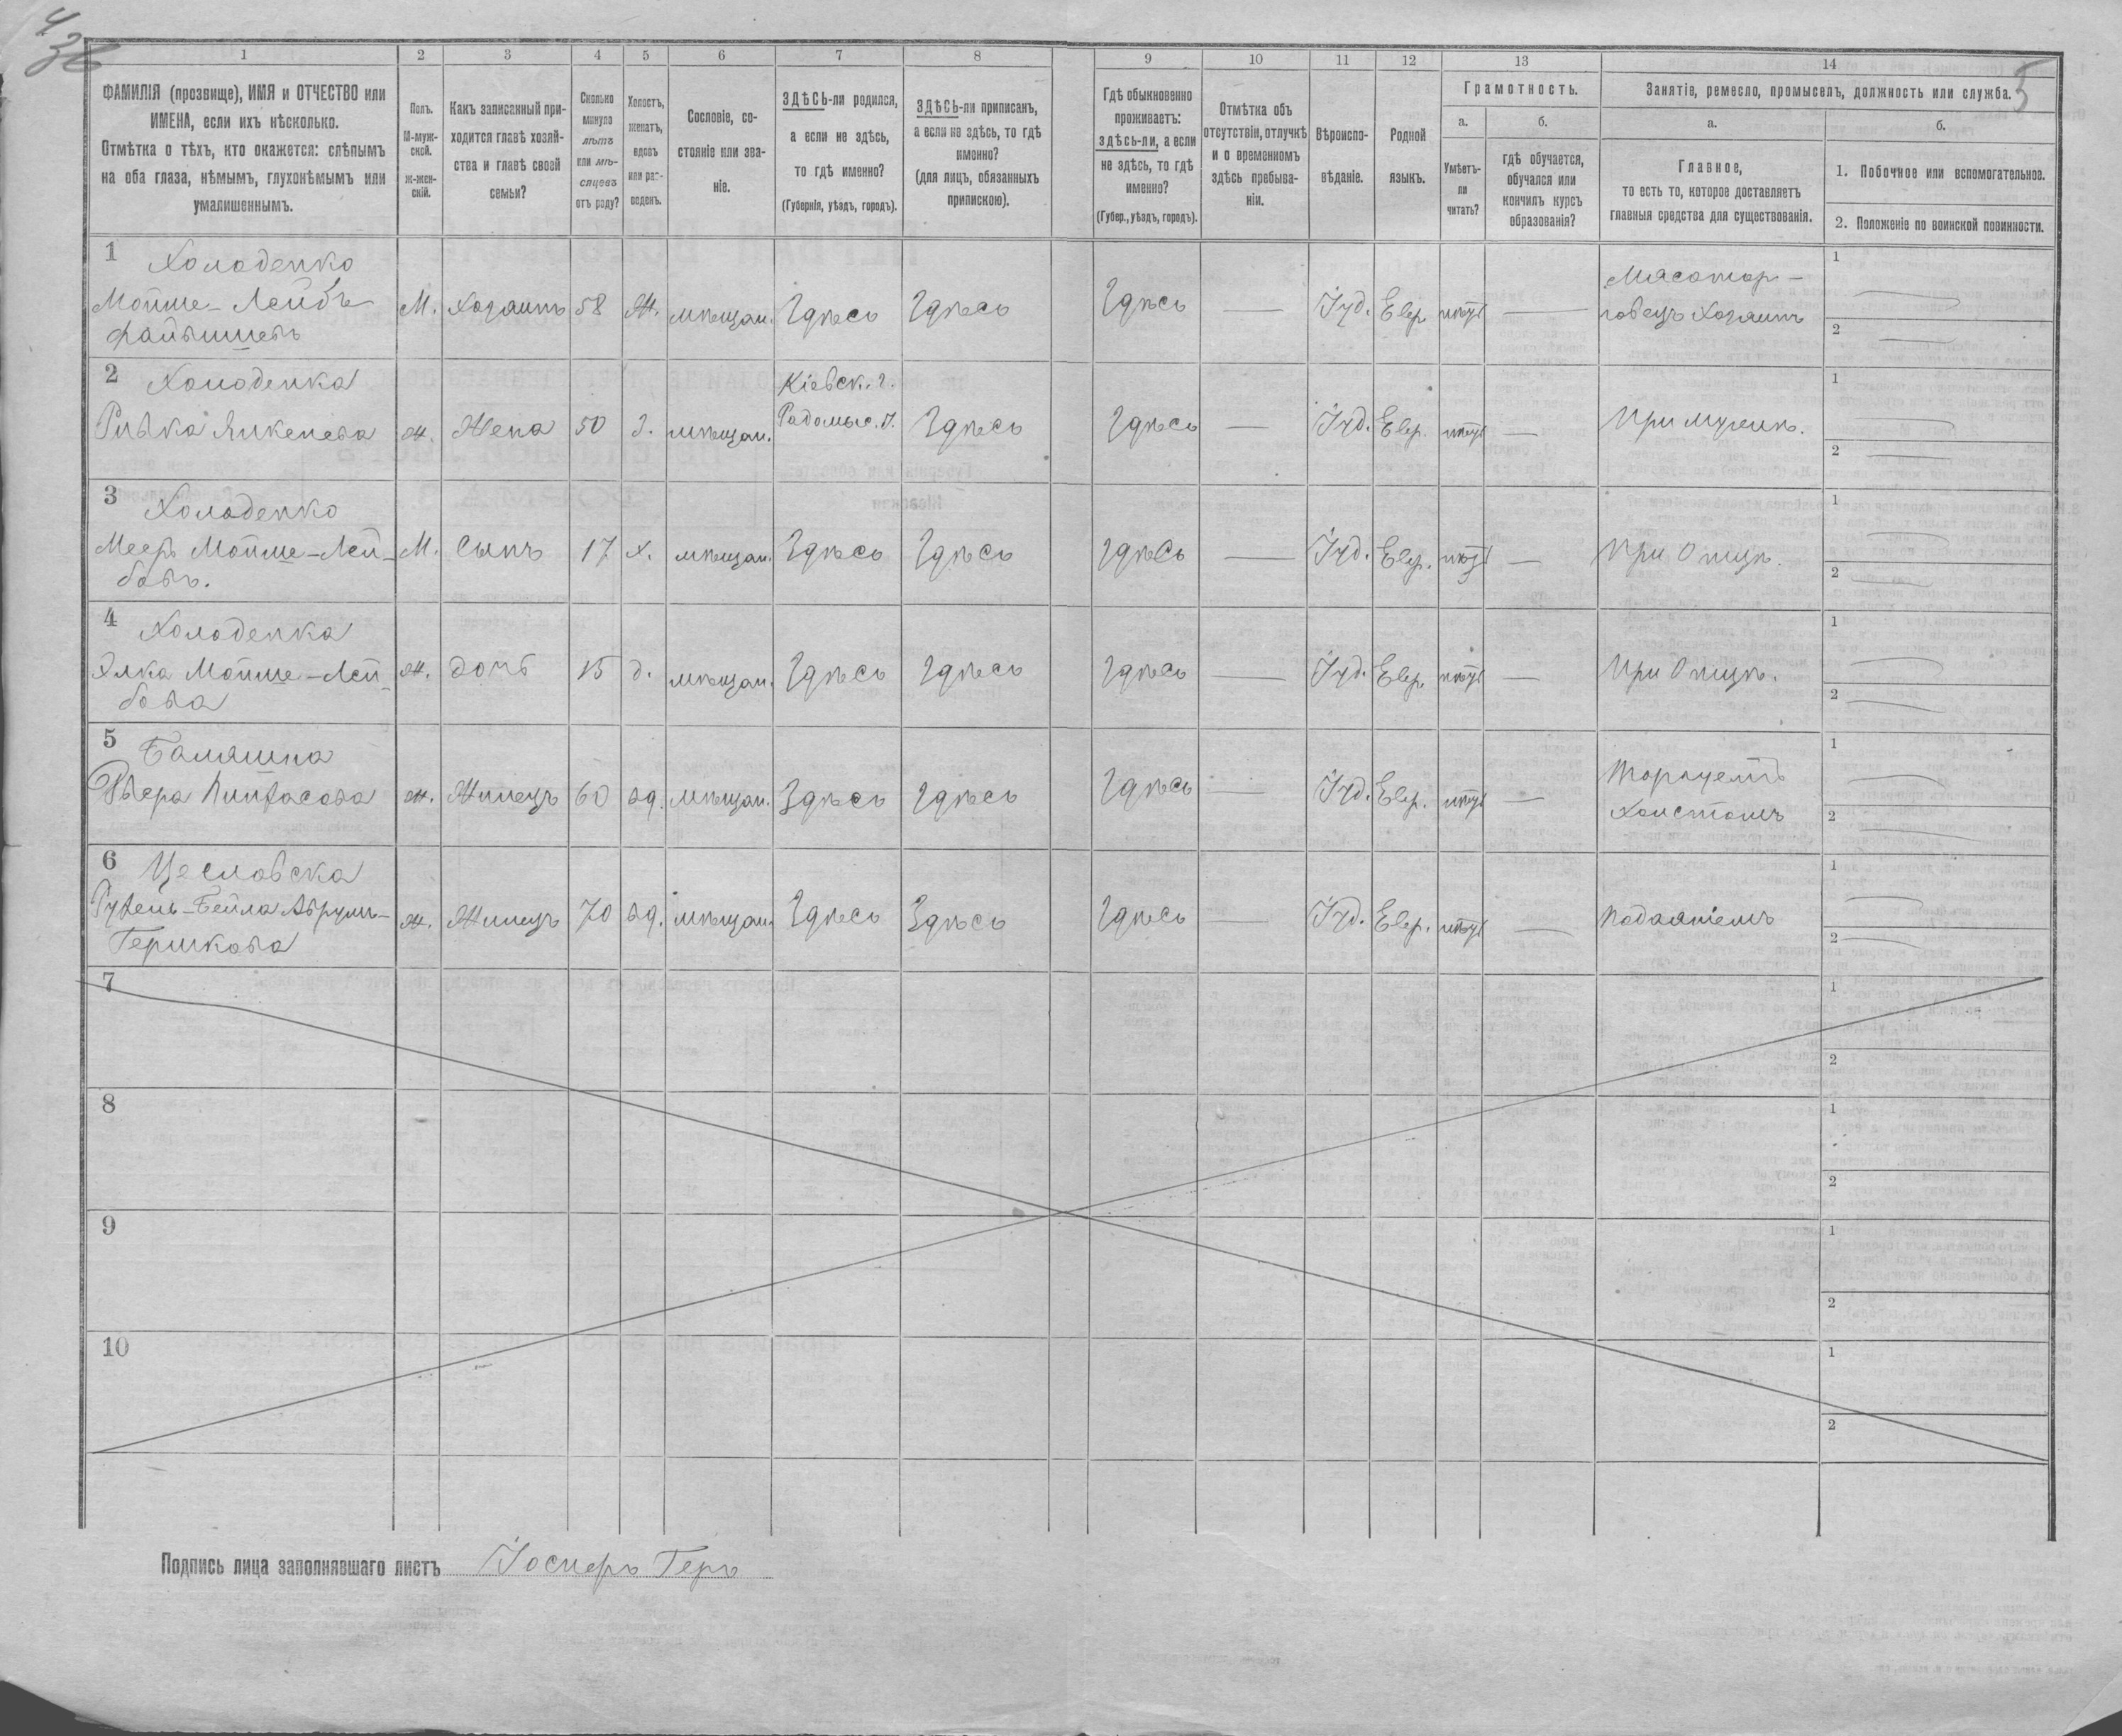 4
36
5
1 2 3 4 5 6 7 8 9 10 11 12 13 14
ФАМИЛІЯ (прозвище), ИМЯ и ОТЧЕСТВО или
ИМЕНА, если ихъ нѣсколько.
Отмѣтка о тѣхъ, кто окажется: слѣпымъ
на оба глаза, нѣмымъ, глухонѣмымъ или
умалишеннымъ.
Полъ.
М-муж-
ской.
ж-жен-
скій.
Какъ записанный при-
ходится главѣ хозяй-
ства и главѣ своей
семьи?
Сколько
минуло
лѣтъ
или мѣ-
сяцевъ
отъ роду?
Холостъ,
женатъ,
вдовъ
или раз-
веденъ.
Сословіе, со-
стояніе или зва-
ніе.
ЗДѢСЬ-ли родился,
а если не здѣсь,
то гдѣ именно?
(Губернія, уѣздъ, городъ).
ЗДѢСЬ-ли приписанъ,
а если не здѣсь, то гдѣ
именно?
(для лицъ, обязанныхъ
припискою).
Гдѣ обыкновенно
проживаетъ:
здѣсь-ли, а если
не здѣсь, то гдѣ
именно?
(Губер., уѣздъ, городъ).
Отмѣтка объ
отсутствіи, отлучкѣ
и о временномъ
здѣсь пребыва-
ніи.
Вѣроиспо-
вѣданіе.
Родной
языкъ.
Грамотность.
а.
Умѣетъ-
ли
читать?
б.
гдѣ обучается,
обучался или
кончилъ курсъ
образованія?
Занятіе, ремесло, промыселъ, должность или служба.
а.
Главное,
то есть то, которое доставляетъ
главныя средства для существованія.
б.
1. Побочное или вспомогательное.
2. Положеніе по воинской повинности.
1 Холоденко
Мойше-Лейбъ
М. Хозяинъ 58 Ж. мѣщан. Здѣсь Здѣсь Здѣсь — Іуд. Евр. — Мясотор-
говецъ Хозяинъ
1
2
2 Холоденка
Ривка Янкелева ж. Жена 50 З. мѣщан. Кіевск. г.
Радомыс. у. Здѣсь Здѣсь — Іуд. Евр. — При мужѣ.
1
2
3 Холоденко
Мееръ Мойше-Лей-
бовъ. М. Сынъ 17 х. мѣщан. Здѣсь Здѣсь Здѣсь — Іуд. Евр. — При Отцѣ.
1
2
4 Холоденка
Элка Мойше-Лей-
бова ж. дочь 15 д. мѣщан. Здѣсь Здѣсь Здѣсь — Іуд. Евр. — При Отцѣ.
1
2
5
Пинхасова ж. Жилецъ 60 вд. мѣщан. Здѣсь Здѣсь Здѣсь — Іуд. Евр. — Торгуетъ
Холстомъ
1
2
6 Цесловска
Бейла Аврумъ-
Гершкова ж. Жилецъ 70 вд. мѣщан. Здѣсь Здѣсь Здѣсь — Іуд. Евр. — Подаяніемъ
1
2
7
1
2
8
1
2
9
1
2
10
1
2
Подпись лица заполнявшаго листъ